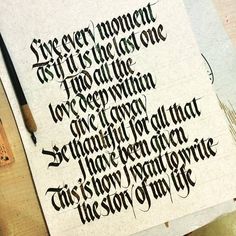 Live every moment
as if it is the last one
Find all the
love deep within
give it away
Be thankful for all that
I have been given
This is how I want to write
the story of my life